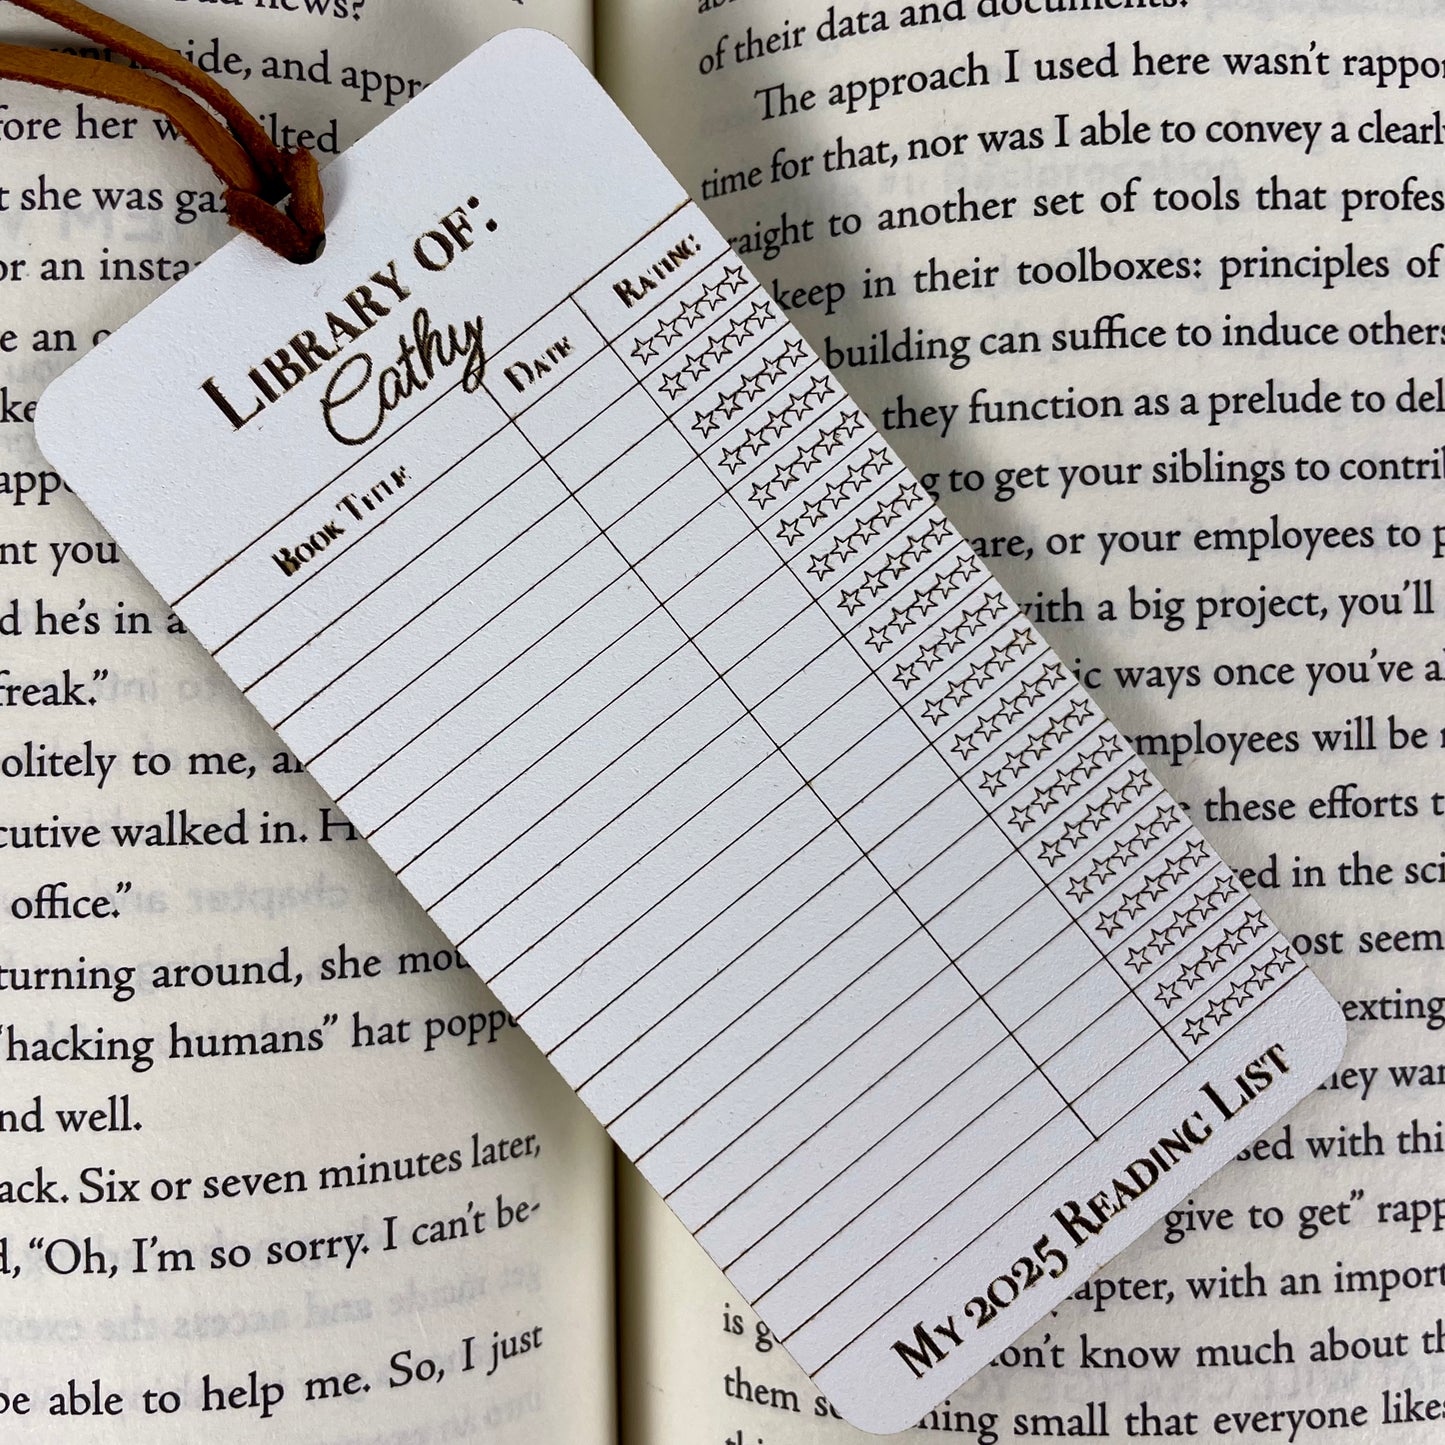 news?
ide, and appr
fore her w ilted
t she was ga
or an insta
e an
ke
app
nt you
d he's in a
freak."
olitely to me, a
cutive walked in. H
office."
turning around, she mo
"hacking humans" hat popp
nd well.
ack. Six or seven minutes later,
d, "Oh, I'm so sorry. I can't be-
be able to help me. So, I just
LIBRARY OF:
Cathy
BOOK TITLE DATE RATING
MY 2025 READING LIST
of their data and documents.
The approach I used here wasn't rappo
time for that, nor was I able to convey a clearl
raight to another set of tools that profes
keep in their toolboxes: principles of
building can suffice to induce others
they function as a prelude to del
g to get your siblings to contri
are, or your employees to p
with a big project, you'll
ic ways once you've al
mployees will be
these efforts t
ed in the sci
ost seem
exting
hey wan
sed with thi
give to get" rapp
apter, with an import
is g on't know much about th
them s ning small that everyone likes